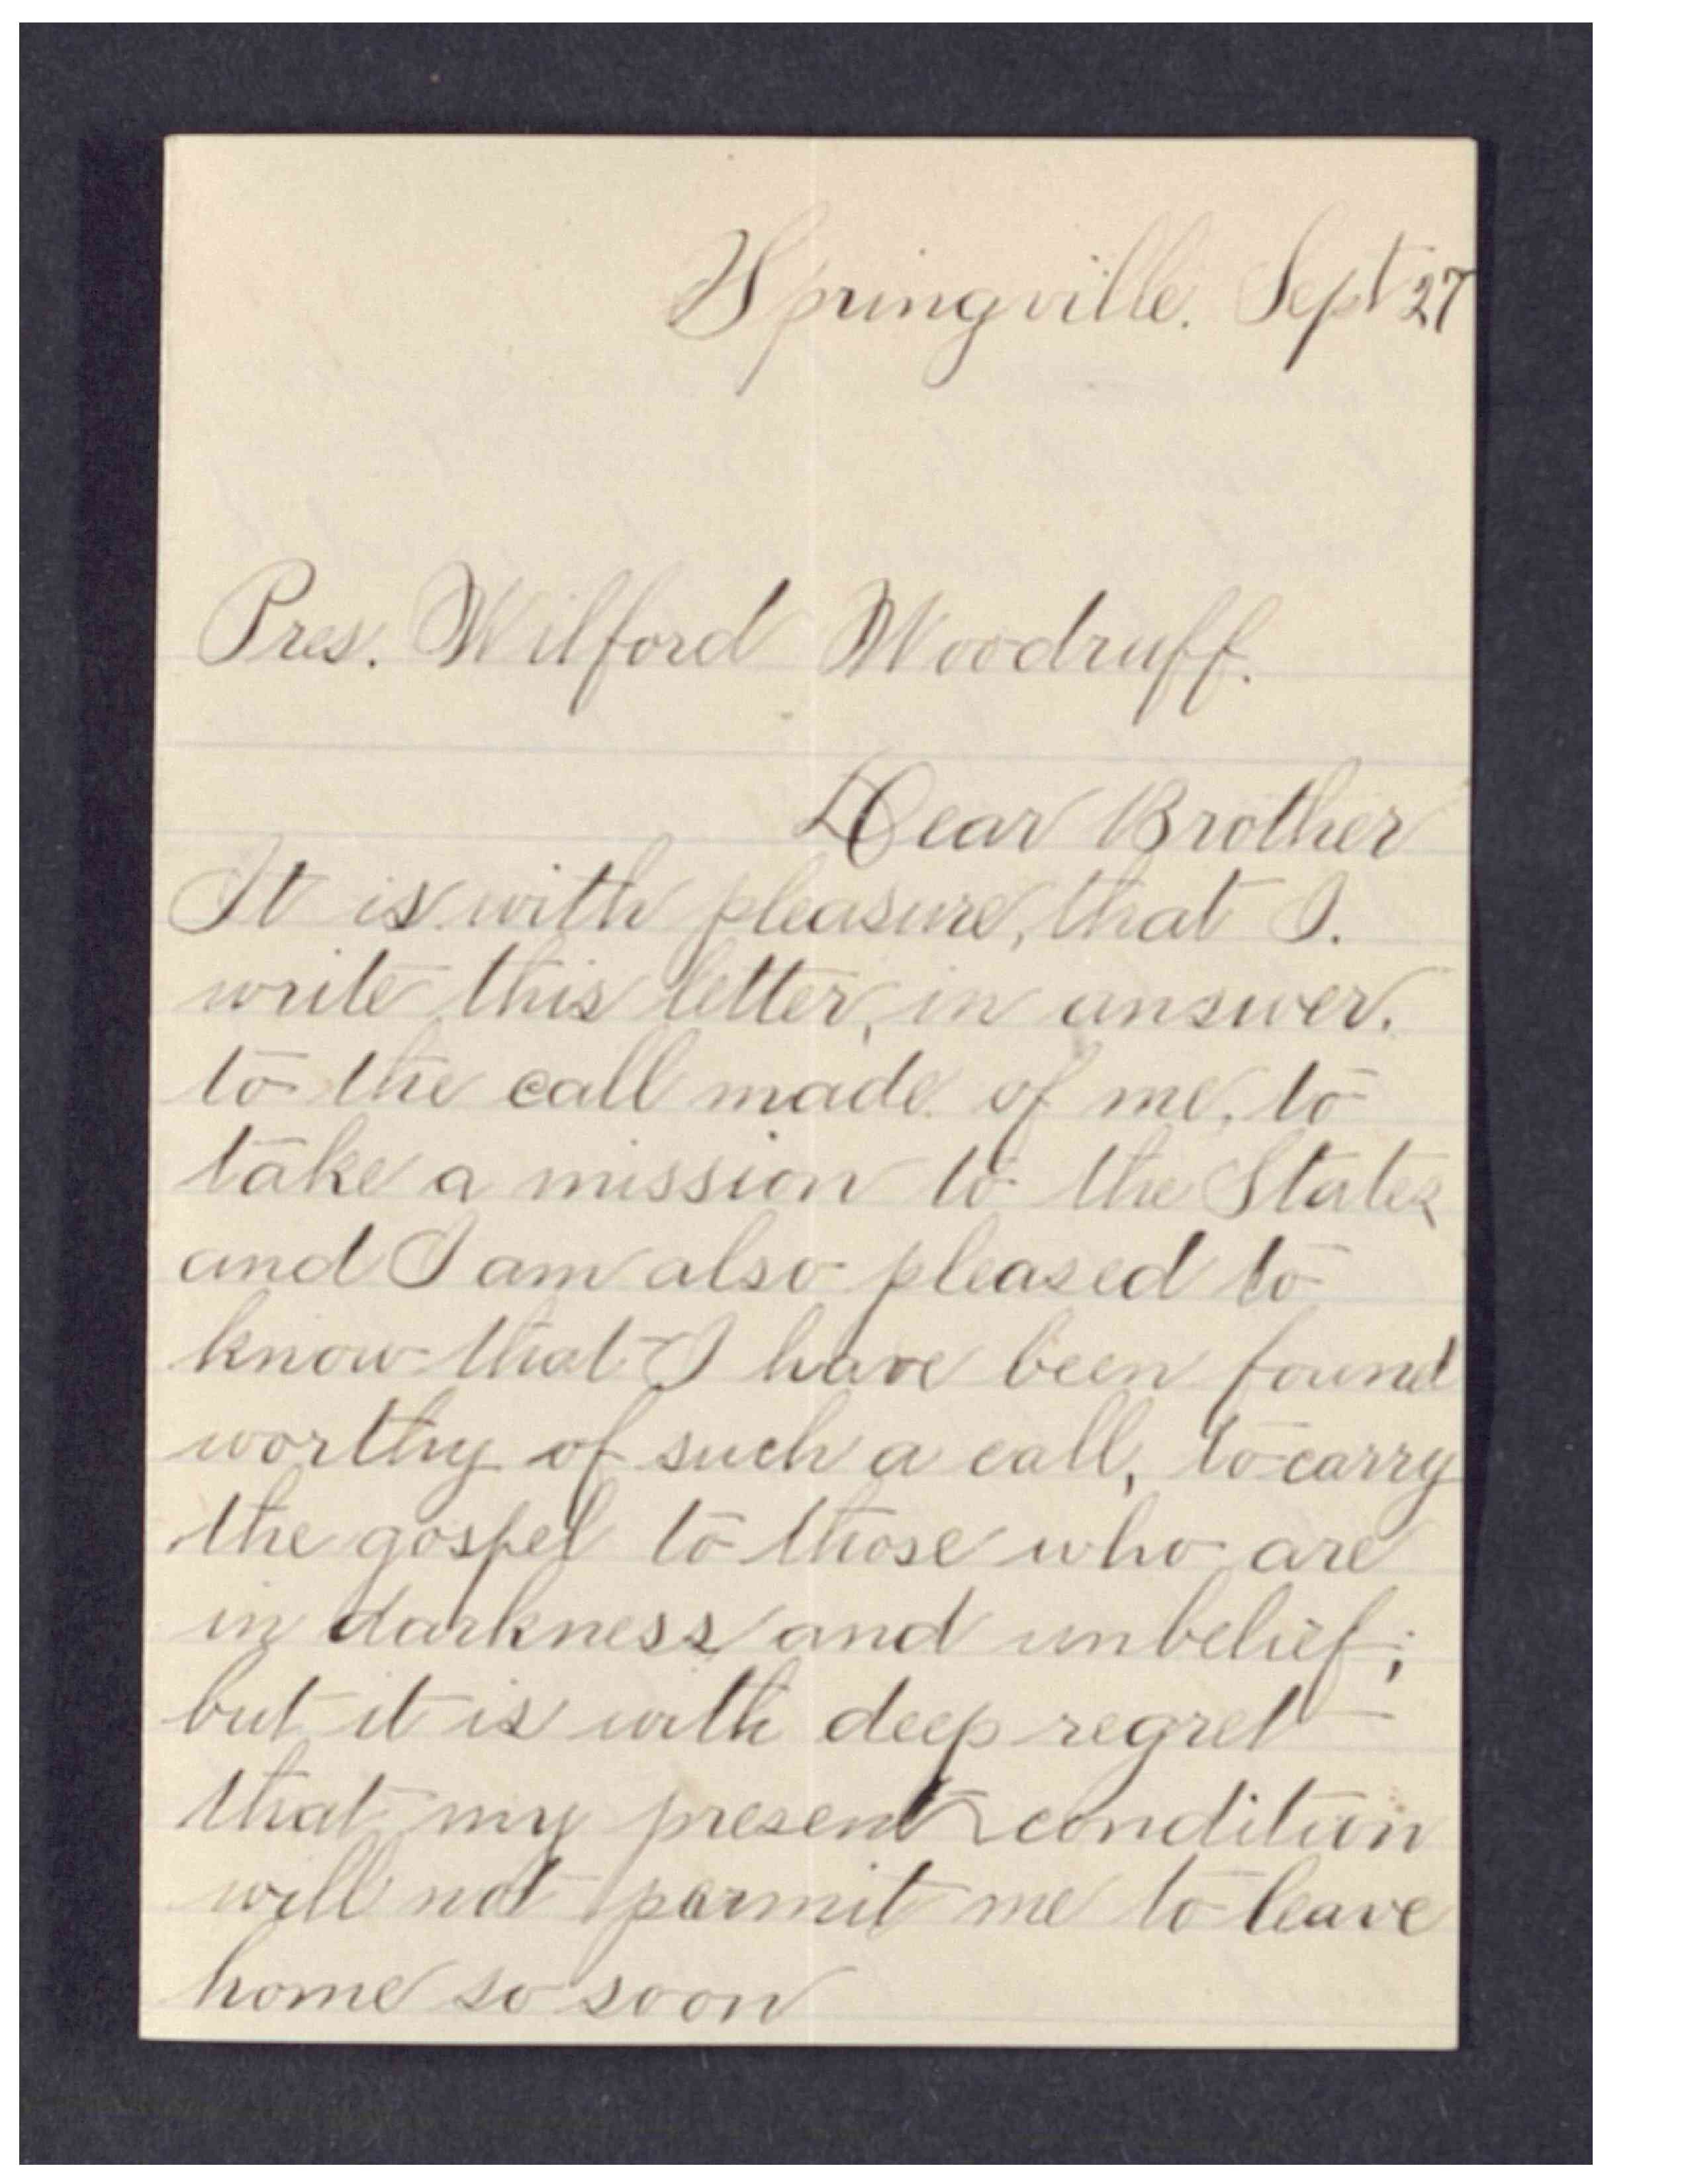 Springville. Sept 27
Pres. Wilford Woodruff.
Dear Brother
It is with pleasure, that I.
write this letter, in answer.
to the call made of me, to
take a mission to the States
and I am also pleased to
know that I have been found
worthy of such a call, to carry
the gospel to those who are
in darkness and unbelief;
but it is with deep regret
that my present condition
will not permit me to leave
home so soon